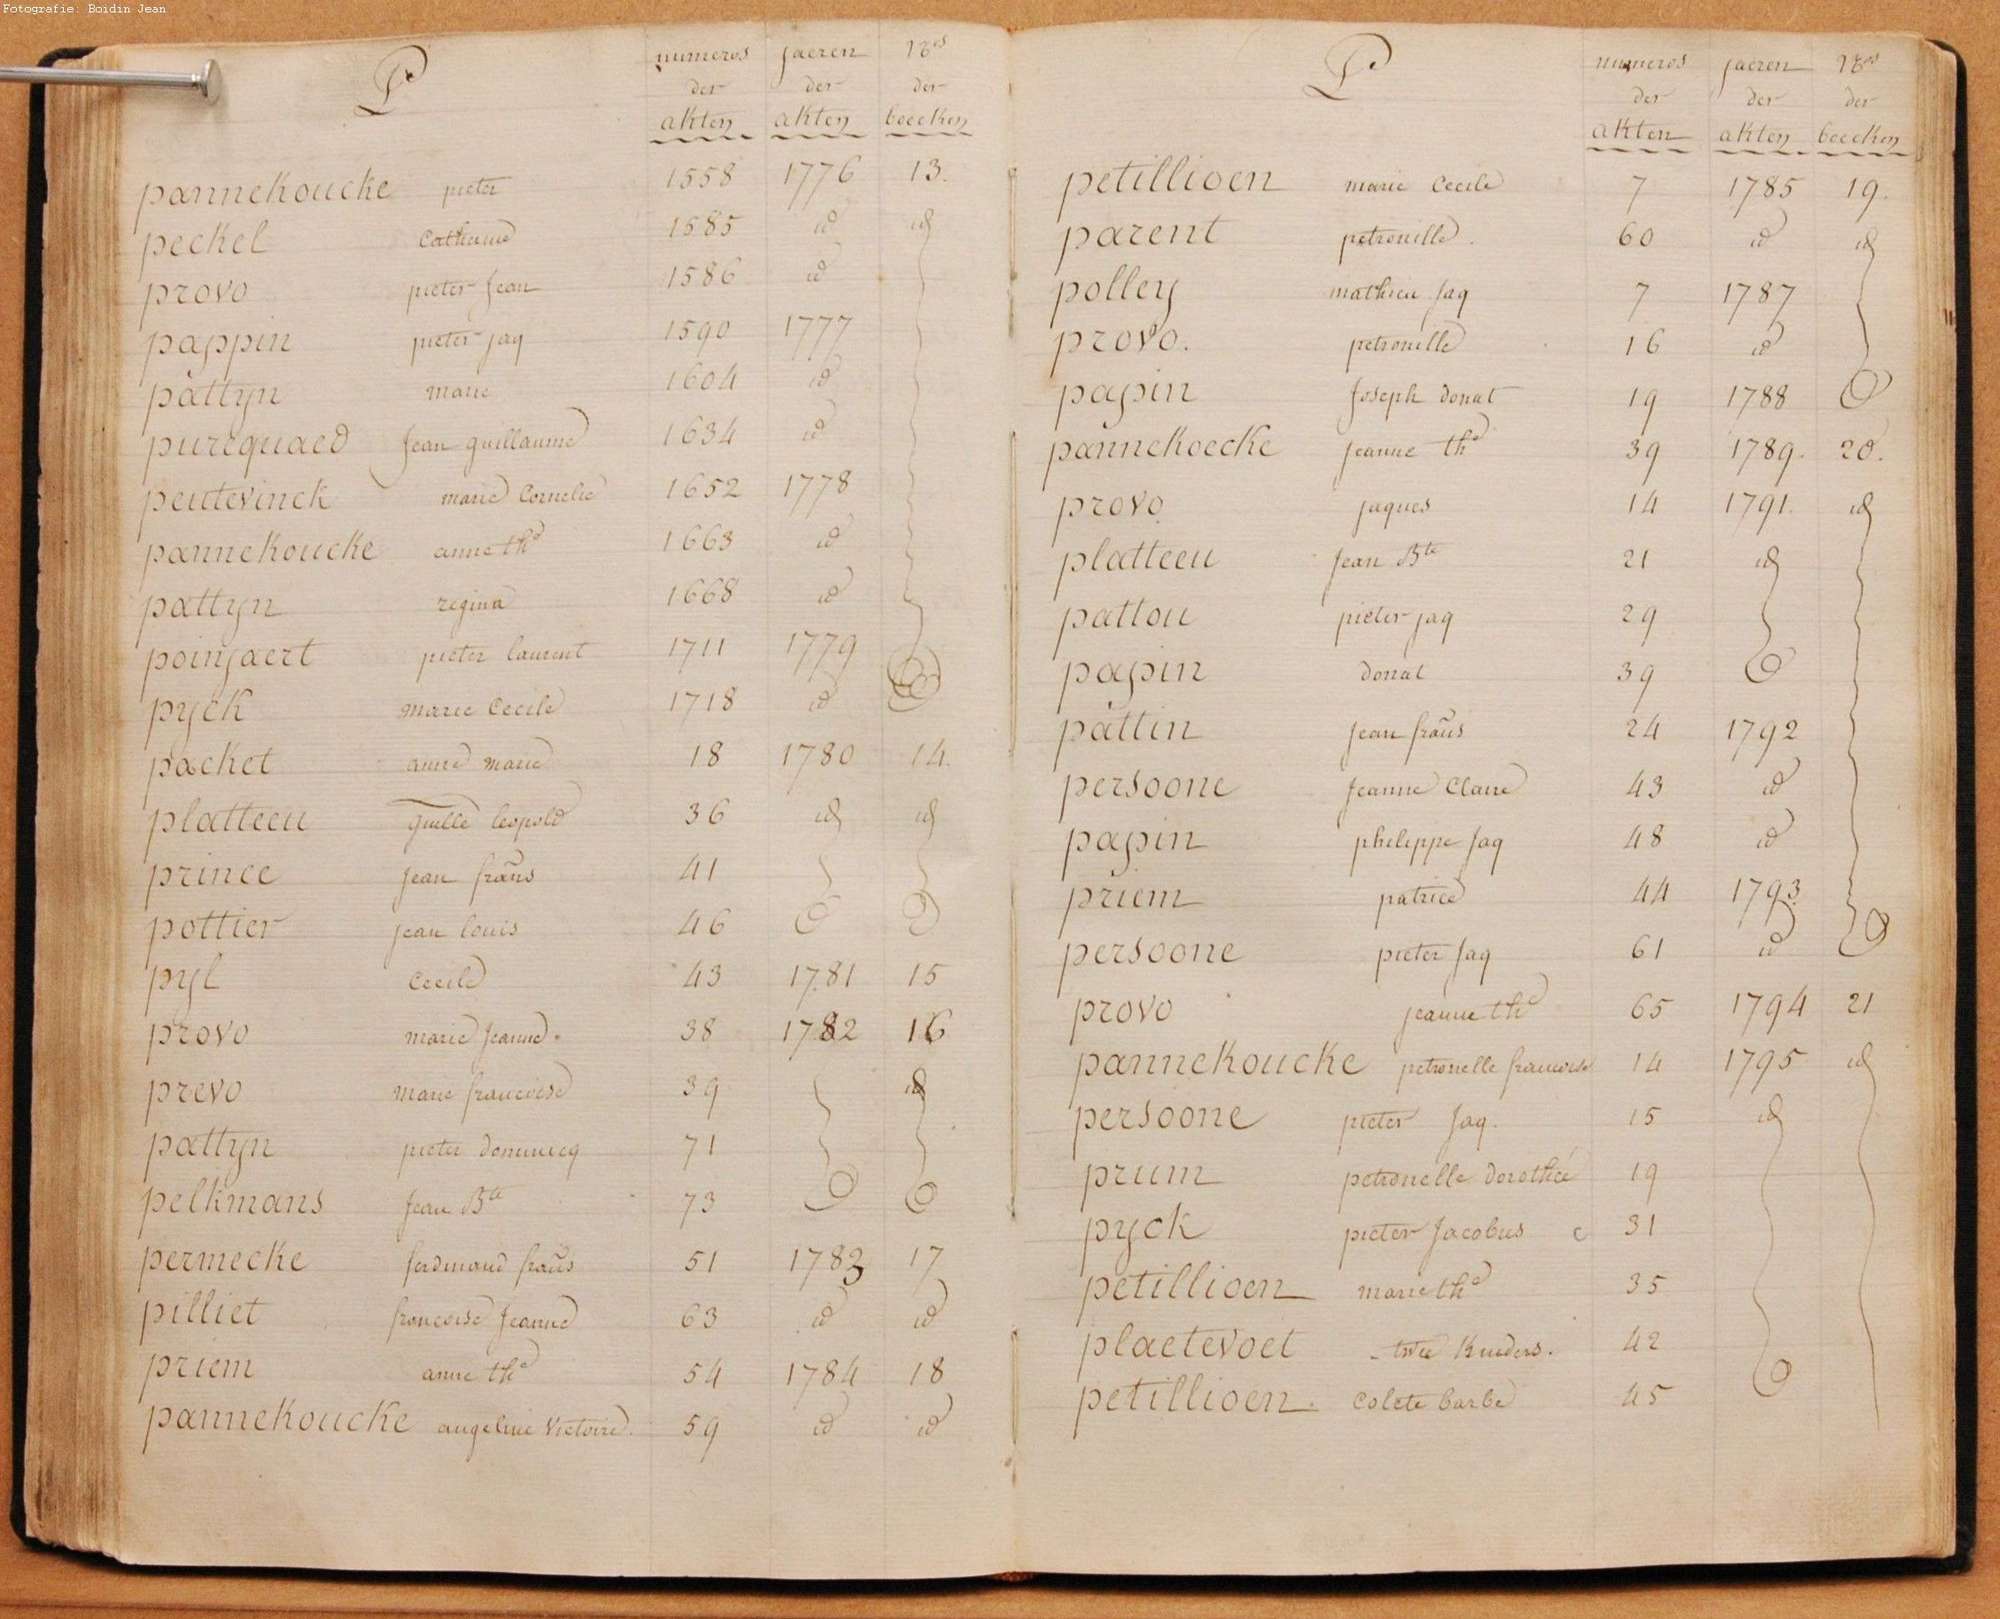 Fotografie: Boidin Jean
P numeros jaeren Nros
der der der
akten akten boecken
pannekoucke pieter 1558 1776 13.
peckel Catherine 1585 id id
provo pieter Jean 1586 id
pappin pieter jaq 1590 1777
pattyn marie 1604 id
purequaed Jean guillaume 1634 id
peutevinck marie Cornelie 1652 1778
pannekoucke anne the 1663 id
pattyn regina 1668 id
poinjaert pieter laurent 1711 1779
pyck marie Cecile 1718 id
packet anne marie 18 1780 14.
platteeu guille leopold 36 id id
prince Jean frans 41
pottier jean louis 46
pyl Cecile 43 1781 15
provo marie Jeanne 38 1782 16
prevo marie francoise 39 id
pattyn pieter dominicq 71
pelkmans Jean Bte 73
permecke ferdinand frans 51 1783 17
pilliet francoise Jeanne 63 id id
priem anne the 54 1784 18
pannekoucke angeline Victoire. 59 id id
P numeros jaeren Nros
der der der
akten akten boecken
petillioen marie Cecile 7 1785 19.
parent petronille. 60 id id
polley mathieu Jaq 7 1787
provo. petronille 16 id
papin Joseph donat 19 1788
pannekoecke Jeanne the 39 1789. 20.
provo jaques 14 1791. id
platteeu Jean Bte 21 id
pattou pieter jaq 29
papin donat 39
pattin Jean frans 24 1792
persoone Jeanne Claire 43 id
papin philippe Jaq 48 id
priem patrice 44 1793
persoone pieter Jaq 61 id
provo jeanne the 65 1794 21
pannekoucke petronelle francoise 14 1795 id
persoone pieter Jaq. 15 id
prium petronelle dorothée 19
pyck pieter Jacobus 31
petillioen marie the 35
plaetevoet twee kinders. 42
petillioen Colete barbe 45